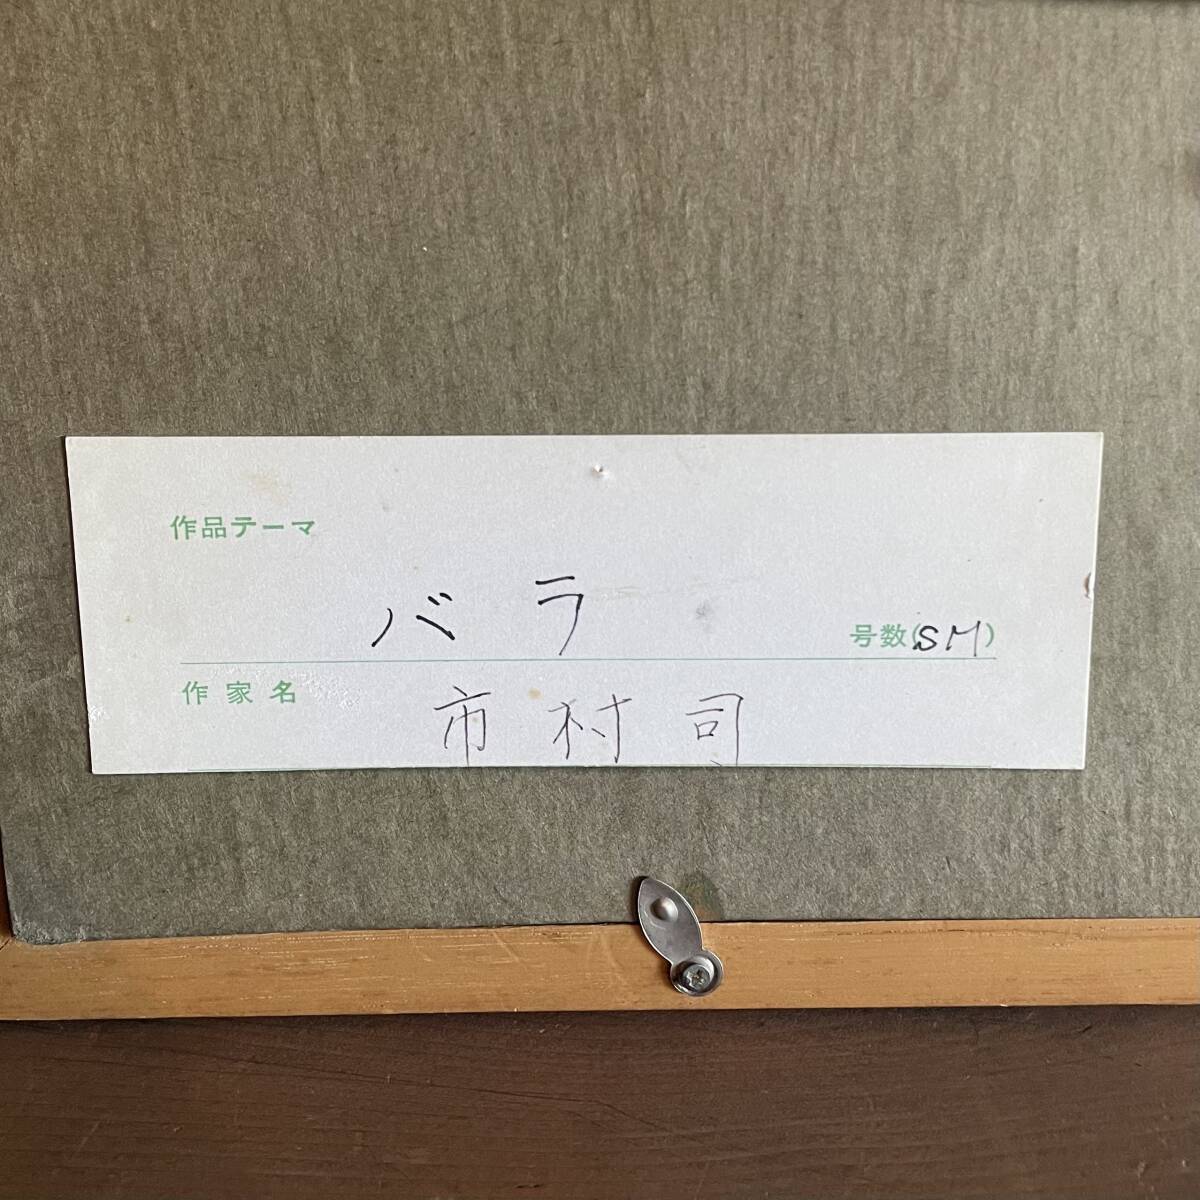 作品テーマ
バラ
号数(SM)
作家名
市村司